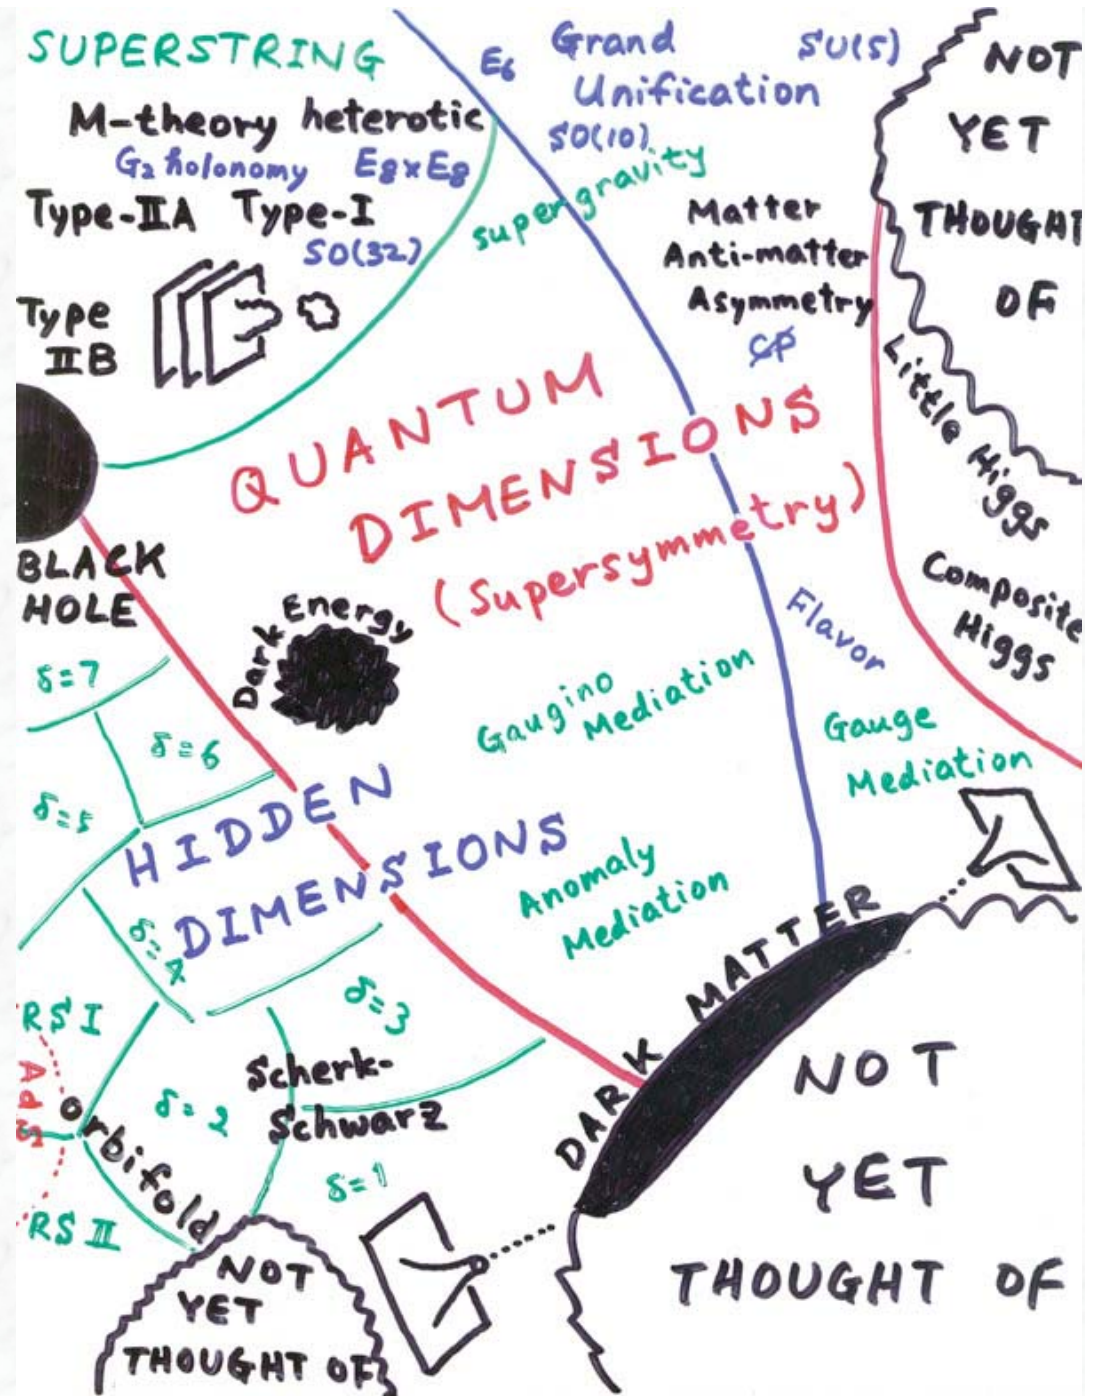 SUPERSTRING
M-theory heterotic
G₂ holonomy E₈×E₈
Type-IIA Type-I
SO(32)
Type
IIB
E₆
Grand
Unification
SU(5)
SO(10)
supergravity
Matter
Anti-matter
Asymmetry
CP
NOT
YET
THOUGHT
OF
Little Higgs
Composite
Higgs
QUANTUM
DIMENSIONS
(Supersymmetry)
BLACK
HOLE
Dark Energy
Flavor
Gaugino
Mediation
Gauge
Mediation
Anomaly
Mediation
δ=7
δ=6
δ=5
HIDDEN
DIMENSIONS
δ=4
δ=3
RS I
AdS
orbifold
RS II
δ=2
Scherk-
Schwarz
δ=1
DARK MATTER
NOT
YET
THOUGHT OF
NOT
YET
THOUGHT OF